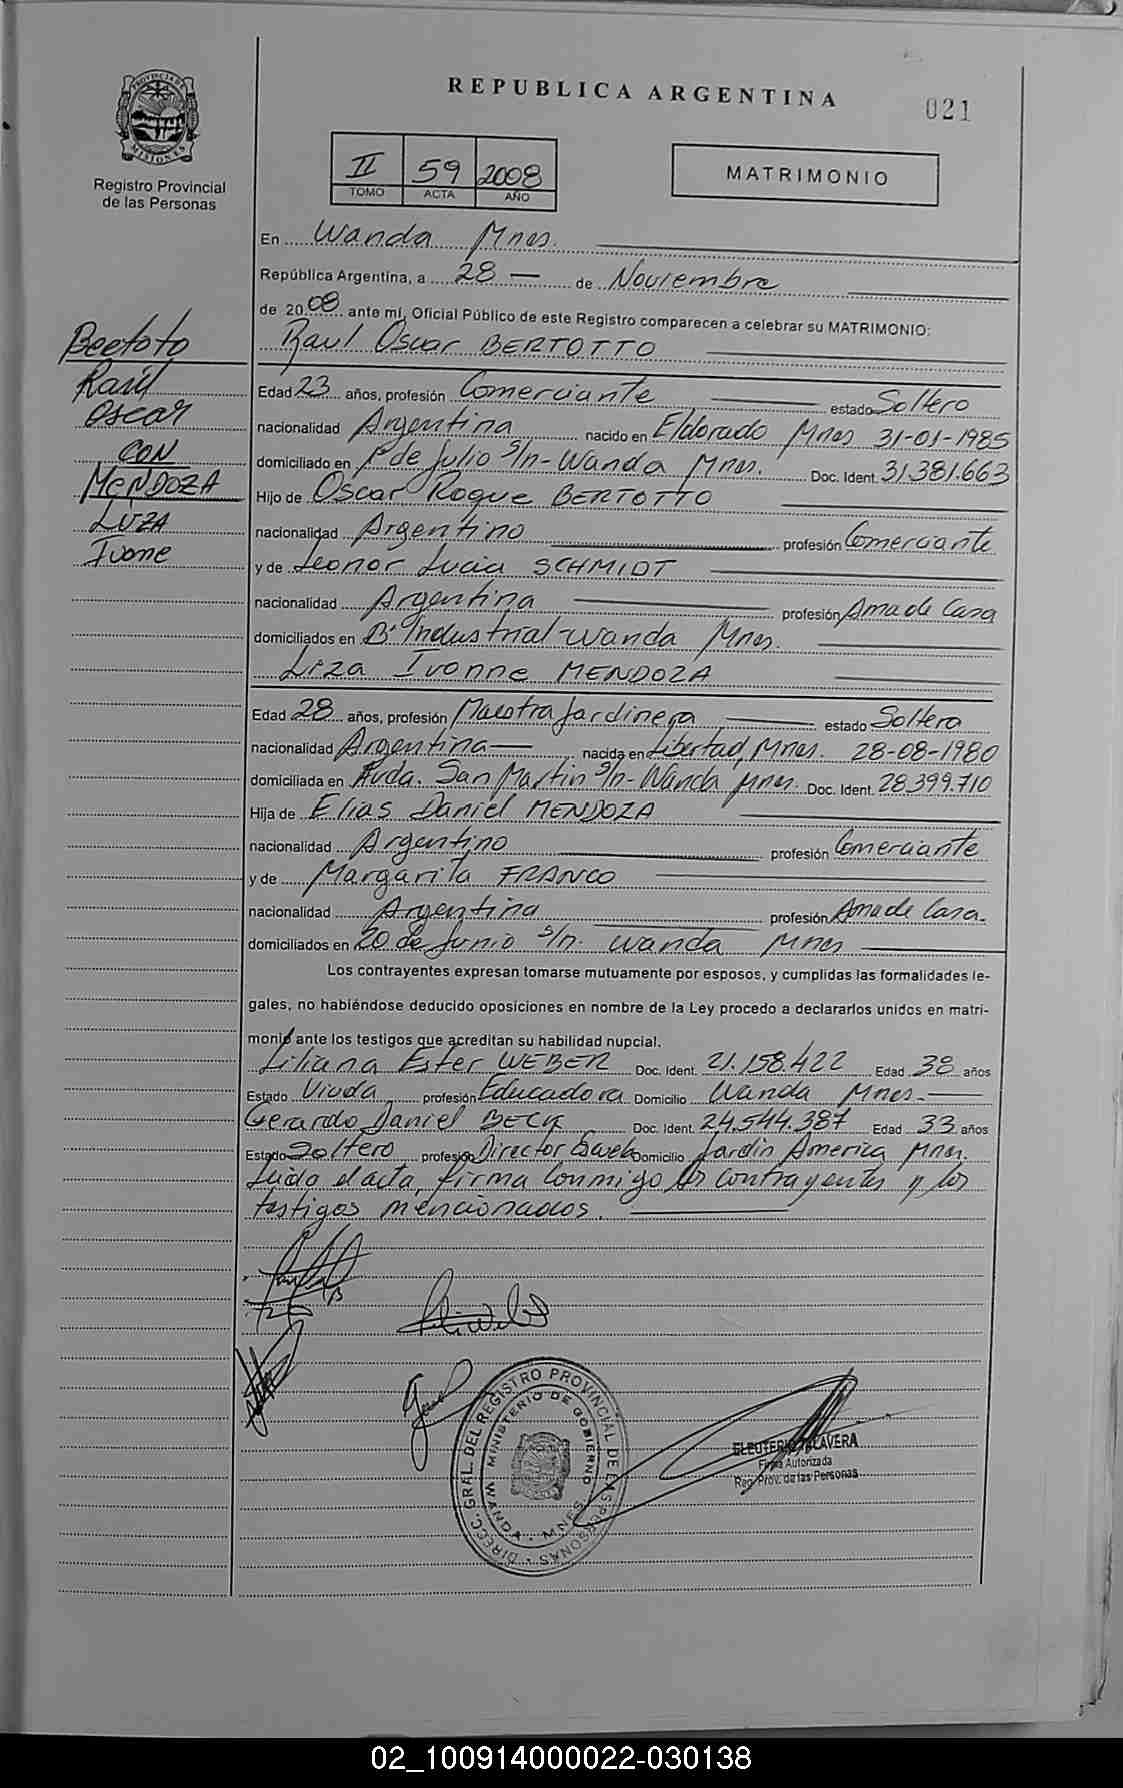 REPUBLICA ARGENTINA
021
PROVINCIA DE MISIONES
Registro Provincial
de las Personas
II 59 2008
TOMO ACTA AÑO
MATRIMONIO
En Wanda Mnes.
República Argentina, a 28 — de Noviembre
de 2008 ante mí, Oficial Público de este Registro comparecen a celebrar su MATRIMONIO:
Raul Oscar BERTOTTO
Edad 23 años, profesión Comerciante estado Soltero
nacionalidad Argentina nacido en Eldorado Mnes 31-01-1985
domiciliado en 1º de Julio S/n-Wanda Mnes. Doc. Ident. 31.381.663
Hijo de Oscar Roque BERTOTTO
nacionalidad Argentino profesión Comerciante
y de Leonor Lucia SCHMIDT
nacionalidad Argentina profesión Ama de Casa
domiciliados en Bº Industrial-Wanda Mnes.
Liza Ivonne MENDOZA
Edad 28 años, profesión Maestra Jardinera estado Soltera
nacionalidad Argentina — nacida en Libertad, Mnes. 28-08-1980
domiciliada en Avda. San Martin S/n-Wanda Mnes. Doc. Ident. 28.399.710
Hija de Elias Daniel MENDOZA
nacionalidad Argentino profesión Comerciante
y de Margarita FRANCO
nacionalidad Argentina profesión Ama de Casa.
domiciliados en 20 de Junio S/n. Wanda Mnes
Los contrayentes expresan tomarse mutuamente por esposos, y cumplidas las formalidades le-
gales, no habiéndose deducido oposiciones en nombre de la Ley procedo a declararlos unidos en matri-
monio ante los testigos que acreditan su habilidad nupcial.
Liliana Ester WEBER Doc. Ident. 21.158.422 Edad 38 años
Estado Viuda profesión Educadora Domicilio Wanda Mnes.
Gerardo Daniel BECK Doc. Ident. 24.544.387 Edad 33 años
Estado Soltero profesión Director Escuela Domicilio Jardin America Mnes.
Leida el acta, firma conmigo los contrayentes y los
testigos mencionados.
Bertoto
Raúl
Oscar
CON
MENDOZA
LIZA
Ivone
DIREC. GRAL. DEL REGISTRO PROVINCIAL DE LAS PERSONAS
MINISTERIO DE GOBIERNO
WANDA - MNES.
ELEUTERIO TALAVERA
Firma Autorizada
Reg. Prov. de las Personas
02_100914000022-030138